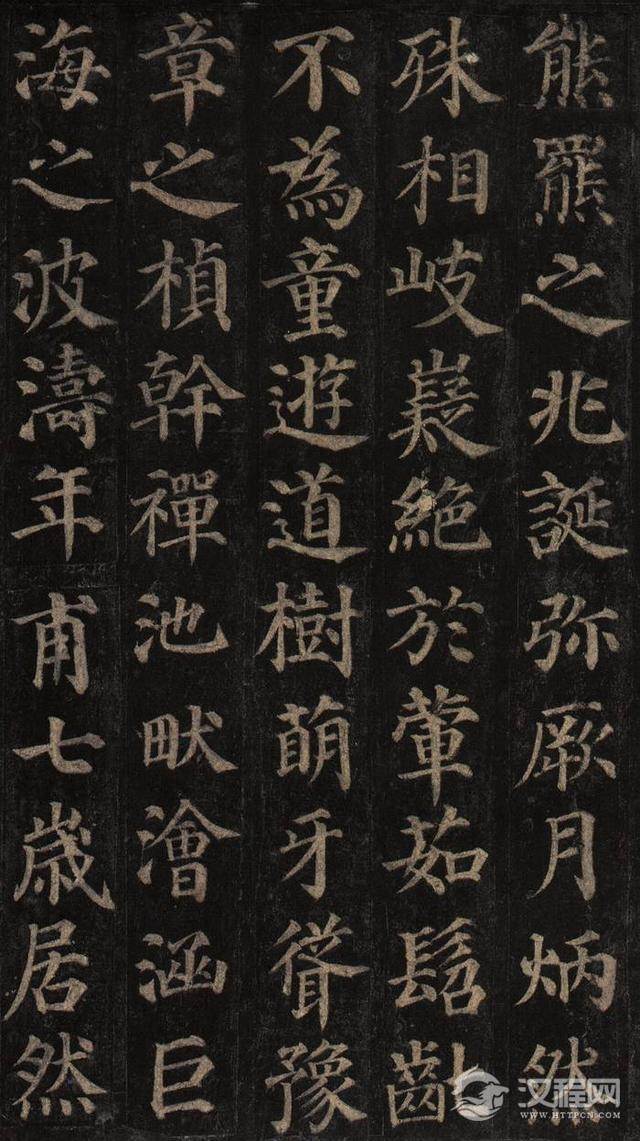 熊羆之兆誕弥厥月炳然
殊相岐嶷絕於葷茹髫齔
不為童遊道樹萌牙聳豫
章之楨幹禪池畎澮涵巨
海之波濤年甫七歲居然
汉程网
WWW.HTTPCN.COM